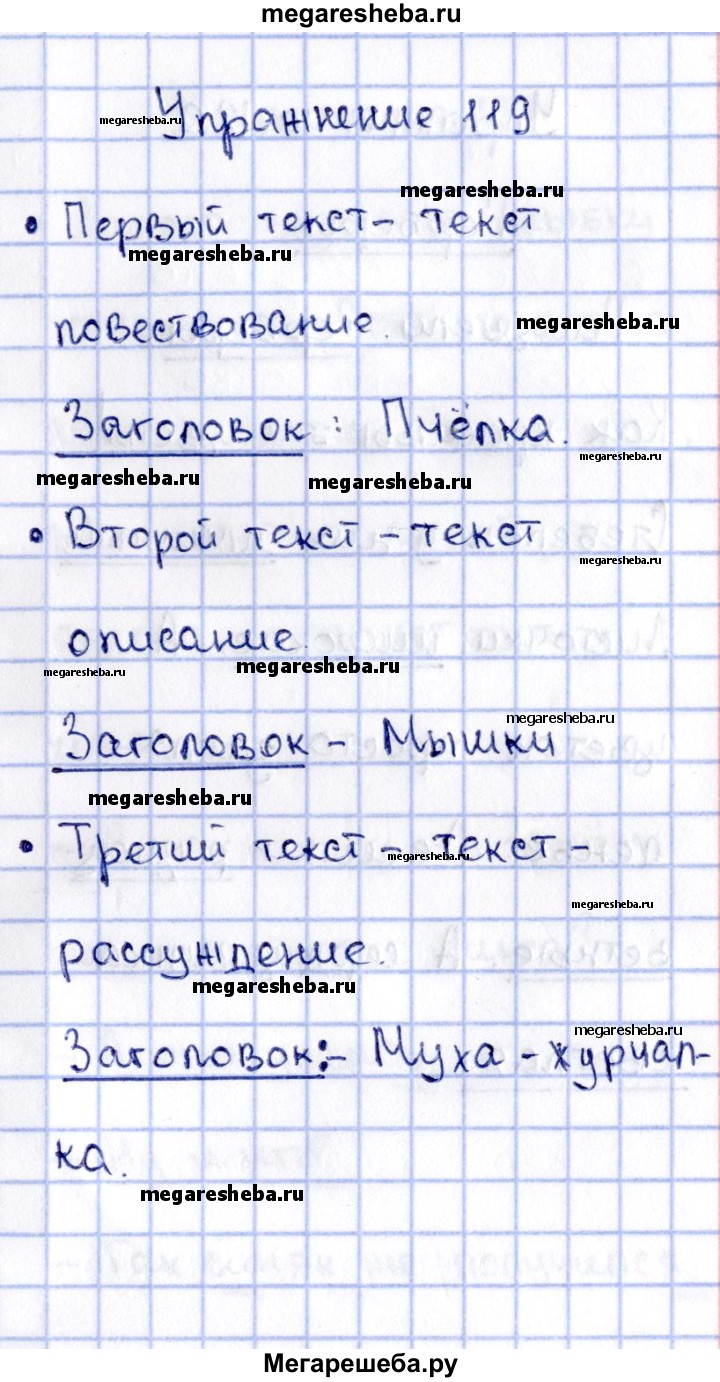 megaresheba.ru
Упражнение 119
megaresheba.ru
megaresheba.ru
• Первый текст – текст
megaresheba.ru
повествование.
megaresheba.ru
Заголовок: Пчёлка.
megaresheba.ru
megaresheba.ru
megaresheba.ru
• Второй текст – текст
megaresheba.ru
описание.
megaresheba.ru
megaresheba.ru
megaresheba.ru
Заголовок – Мышки
megaresheba.ru
• Третий текст – текст –
megaresheba.ru
megaresheba.ru
рассуждение.
megaresheba.ru
megaresheba.ru
Заголовок:– Муха – журчал-
ка.
megaresheba.ru
Мегарешеба.ру